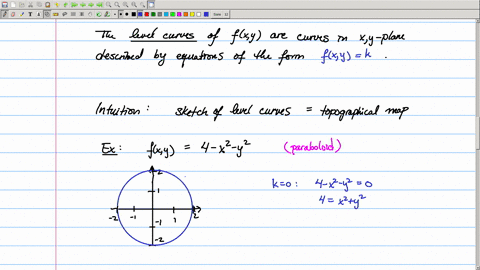 The level curves of f(x,y) are curves in x,y-plane
described by equations of the form f(x,y) = k .
Intuition : sketch of level curves = topographical map
Ex: f(x,y) = 4-x²-y² (paraboloid)
k=0 : 4-x²-y² = 0
4 = x²+y²
2
1
-2 -1 1 2
-1
-2